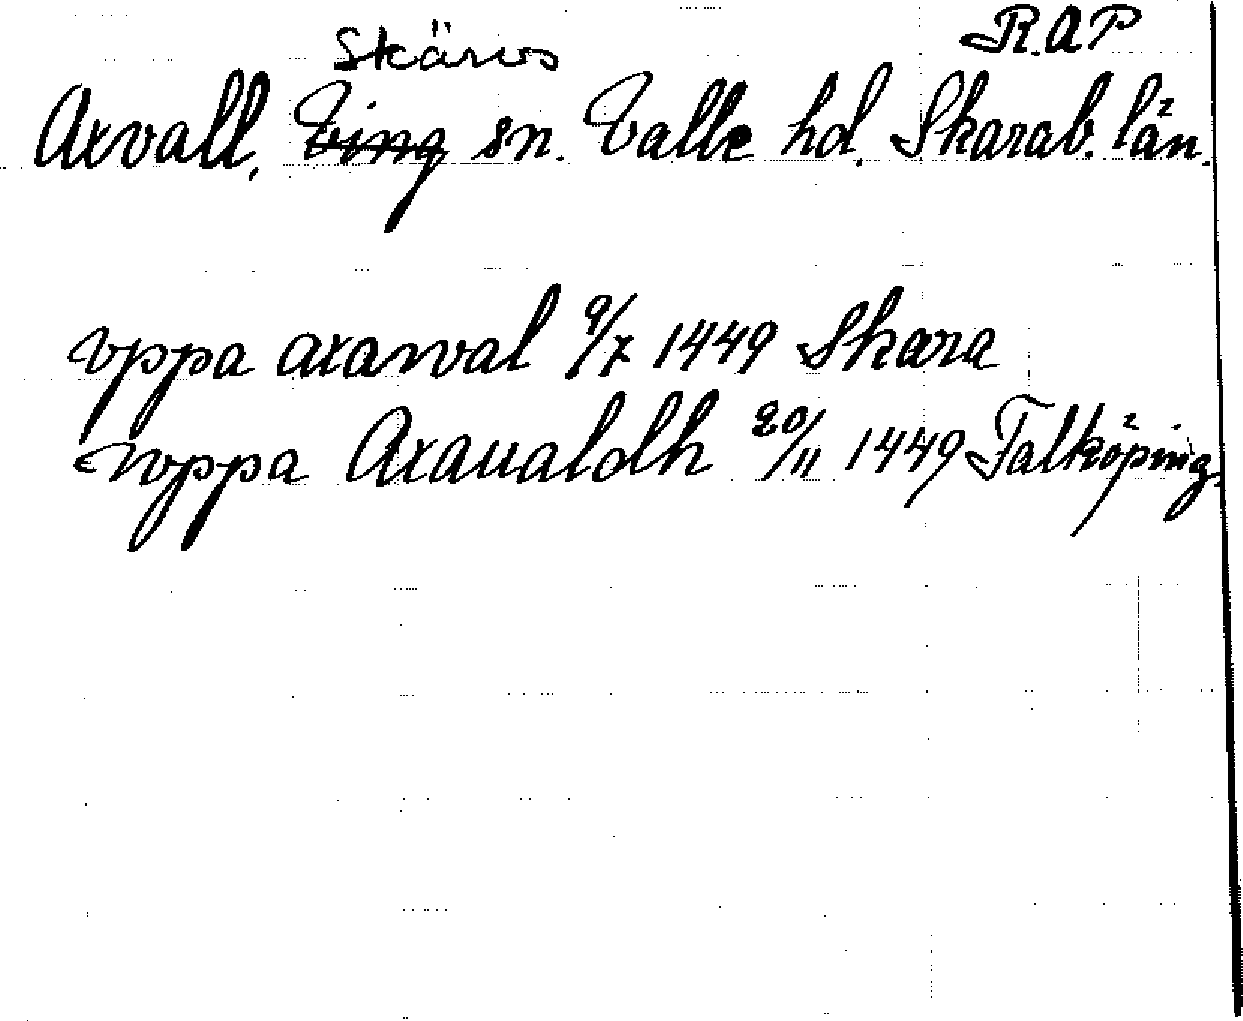 Skärvs R.A.P
Axvall, Ving sn. Valle hd. Skarab. län.
vppa axawal 9/7 1449 Skara
vppa Axaualdh 20/11 1449 Falköping.